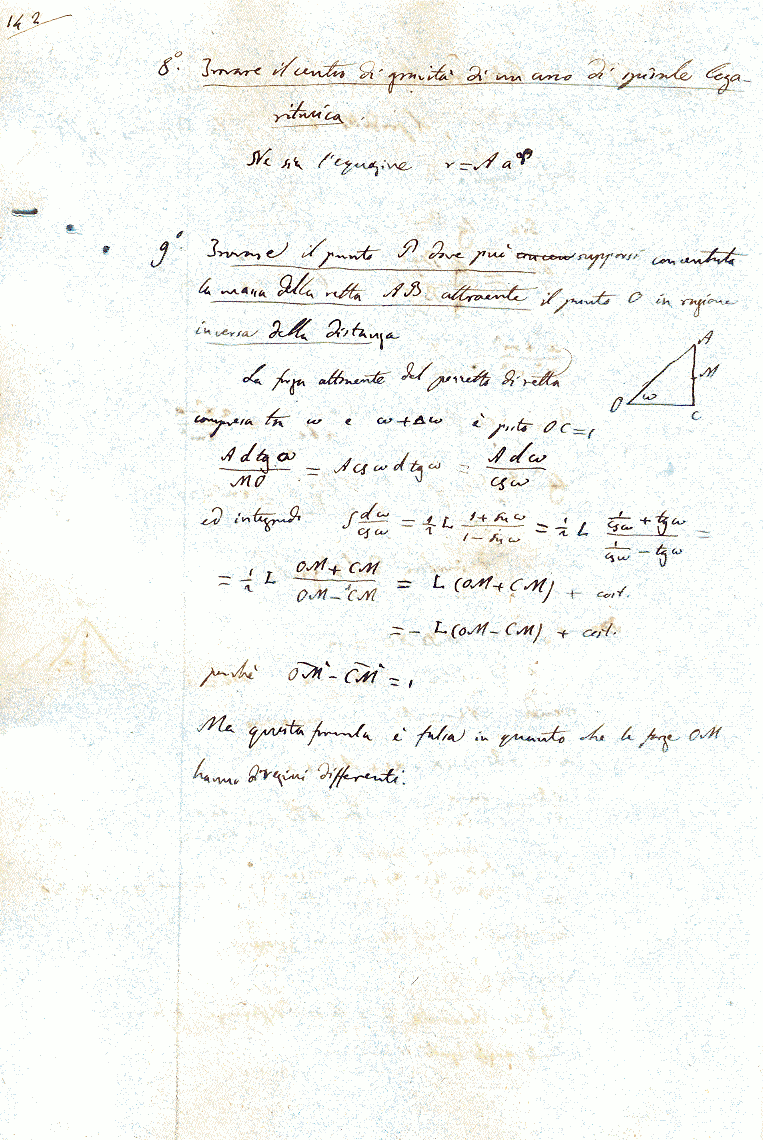 142
8°. Trovare il centro di gravità di un arco di spirale loga-
ritmica.
Ne sia l'equazione r = A a^φ
9° Trovare il punto P dove può supporsi concentrata
la massa della retta AB attraente il punto O in ragione
inversa della distanza
A
M
O ω C
La forza attraente del pezzetto di retta
compresa tra ω e ω+Δω è posto OC=1
A d tg ω / MO = A cs ω d tg ω = A dω / cs ω
ed integrando ∫ dω / cs ω = ½ L (1 + sin ω) / (1 − sin ω) = ½ L (1/cs ω + tg ω) / (1/cs ω − tg ω) =
= ½ L (OM + CM) / (OM − CM) = L (OM + CM) + cost.
= − L (OM − CM) + cost.
perchè OM² − CM² = 1
Ma questa formula è falsa in quanto che le forze OM
hanno direzioni differenti.